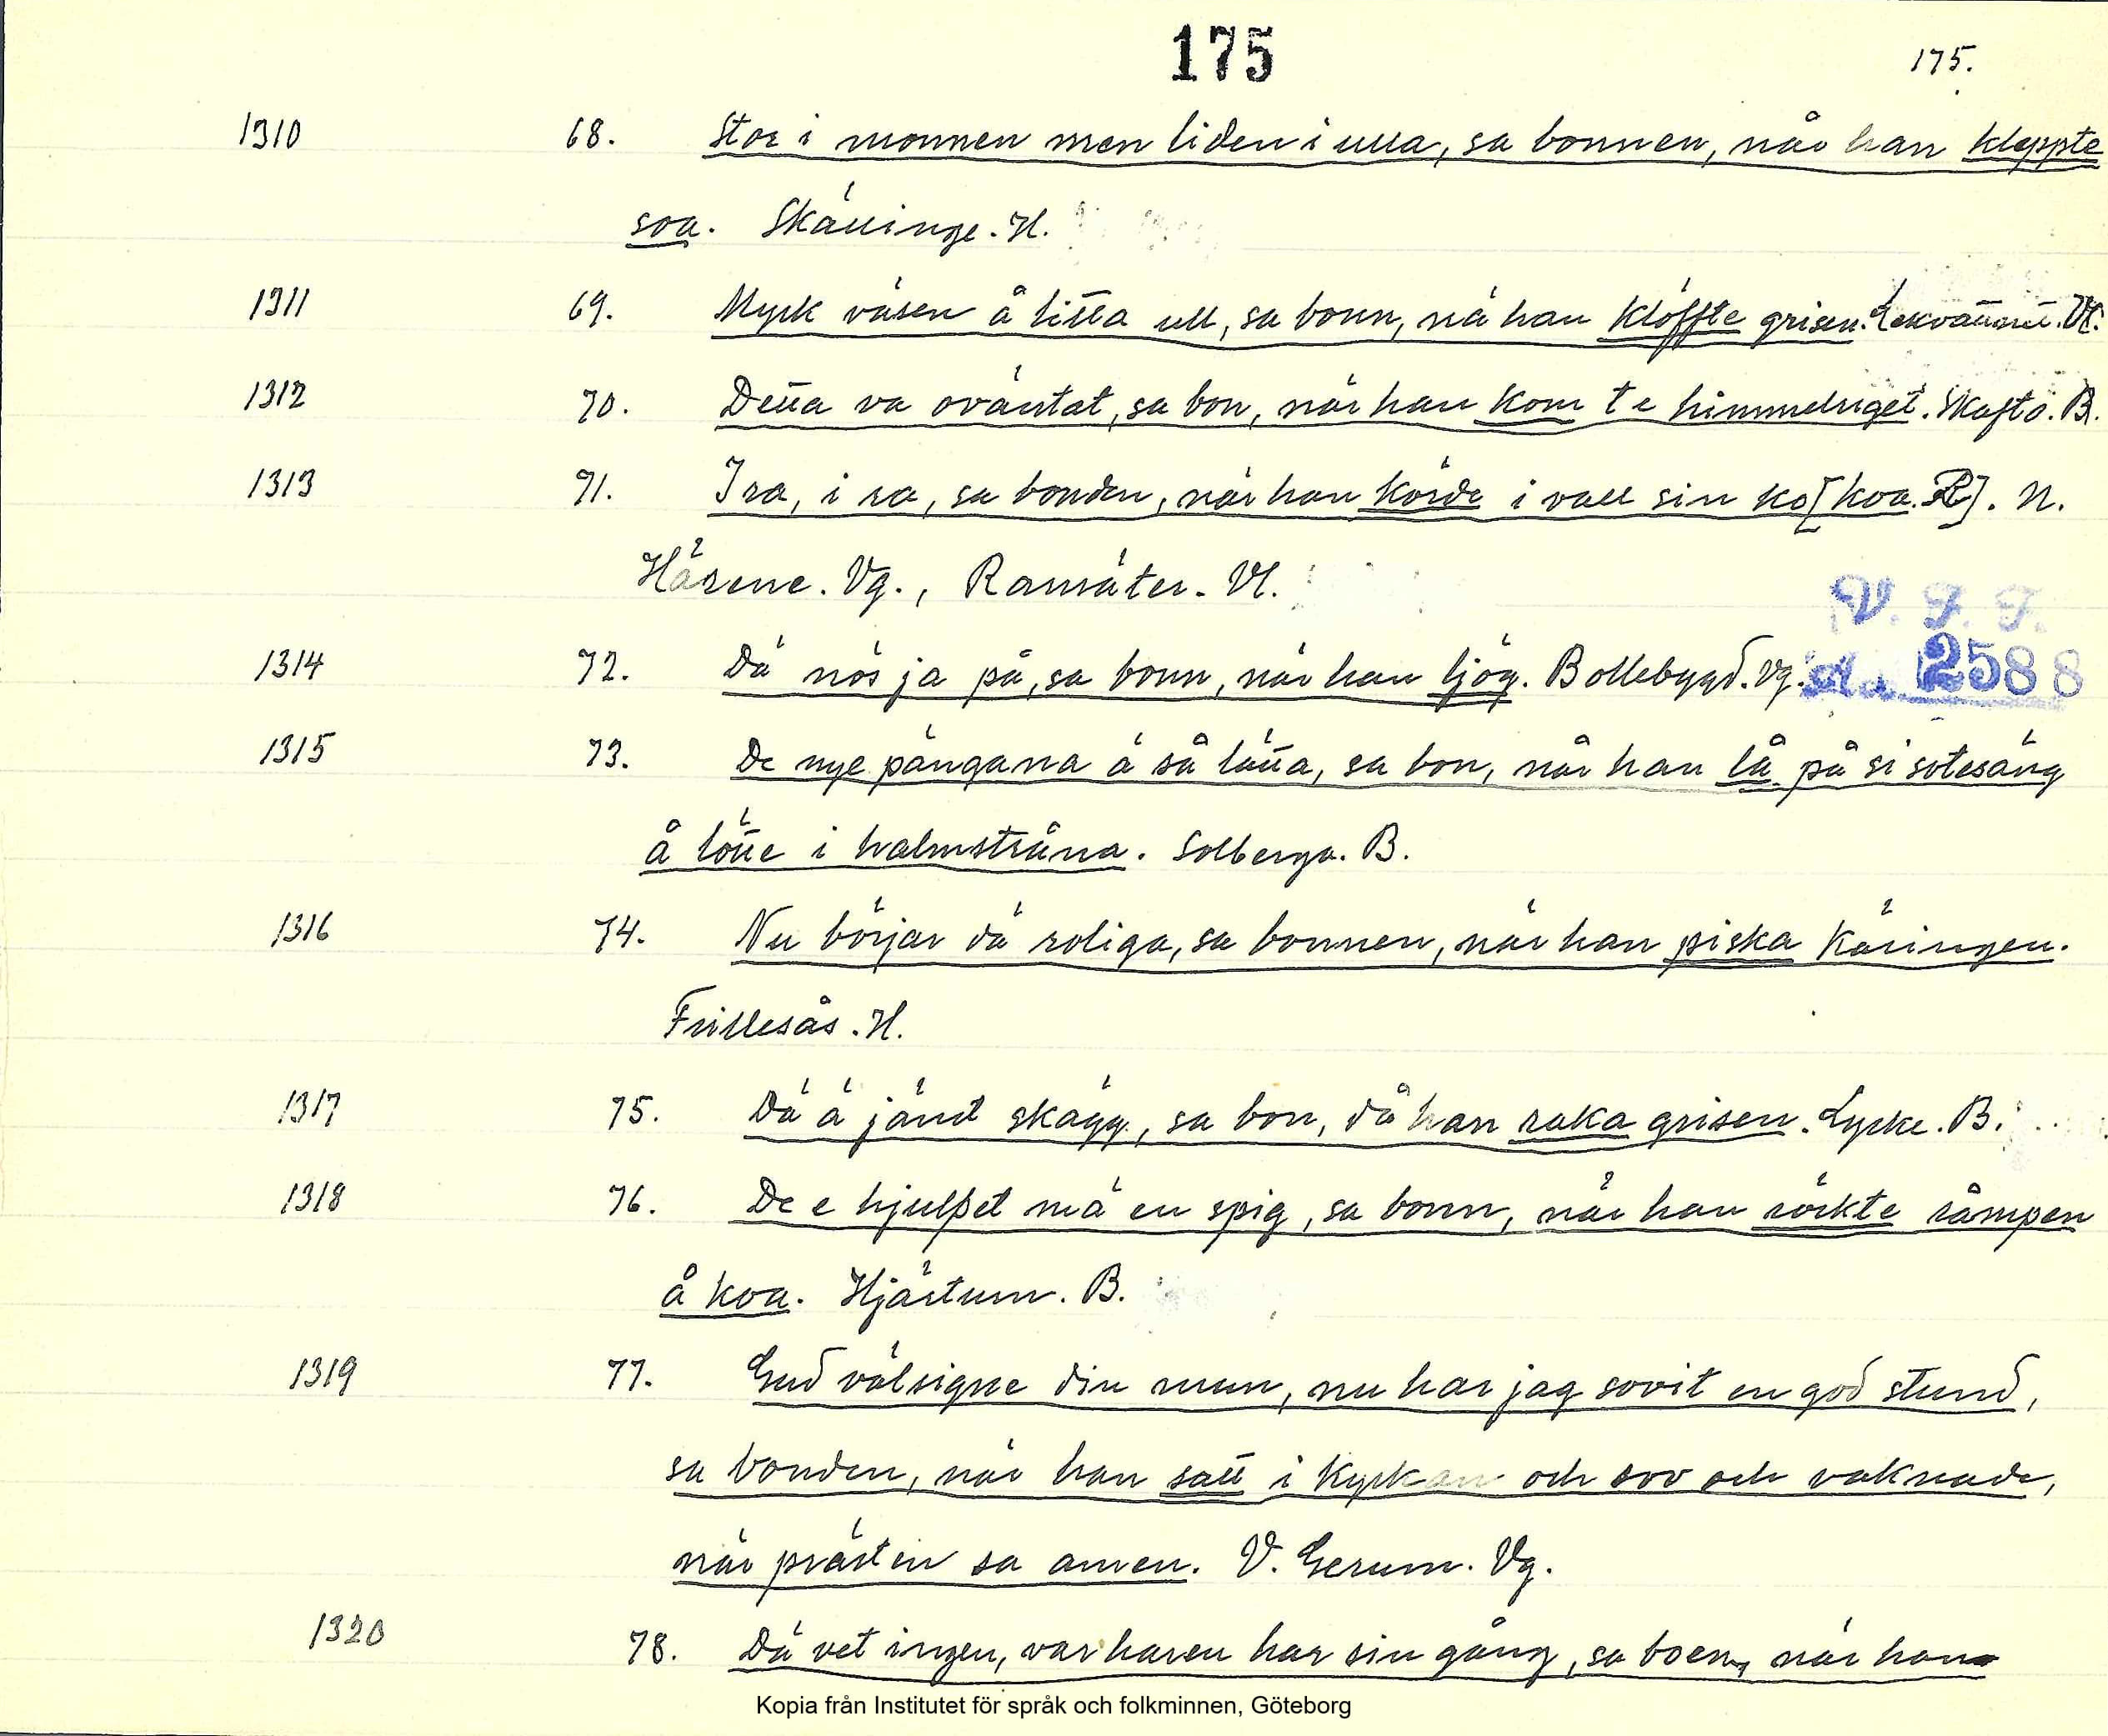 175
175.
1310 68. Stor i monnen men liden i ulla, sa bonnen, när han kleppte
soa. Skällinge. H.
1311 69. Myck väsen å litta ull, sa bonn, nä han klöffte grisen. Lekvattnet. Vl.
1312 70. Detta va oväntat, sa bon, när han kom te himmelriget. Skaftö. B.
1313 71. I ra, i ra, sa bonden, när han körde i vall sin ko [koa. R]. N.
Härene. Vg., Ransäter. Vl.
V. F. F.
1314 72. Dä nös ja på, sa bonn, när han ljög. Bollebygd. Vg.
2588
1315 73. De nye pängana ä så lätta, sa bon, når han lå på si sotesäng
å lötte i halmstråna. Solberga. B.
1316 74. Nu börjar dä roliga, sa bonnen, när han piska käringen.
Frillesås. H.
1317 75. Dä ä jämt skägg, sa bon, då han raka grisen. Lycke. B.
1318 76. De e hjulpet mä en spig, sa bonn, när han röckte råmpen
å koa. Hjärtum. B.
1319 77. Gud välsigne din mun, nu har jag sovit en god stund,
sa bonden, när han satt i kyrkan och sov och vaknade,
när prästen sa amen. V. Gerum. Vg.
1320 78. Dä vet ingen, var haren har sin gång, sa boen, när han
Kopia från Institutet för språk och folkminnen, Göteborg